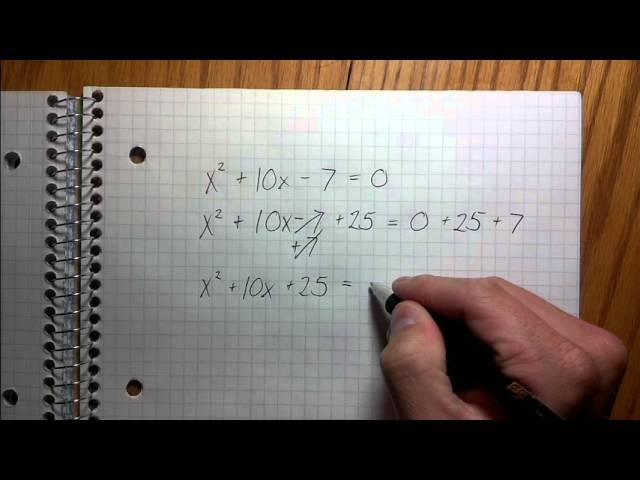 x² + 10x - 7 = 0
x² + 10x - 7 + 25 = 0 + 25 + 7
+7
x² + 10x + 25 =